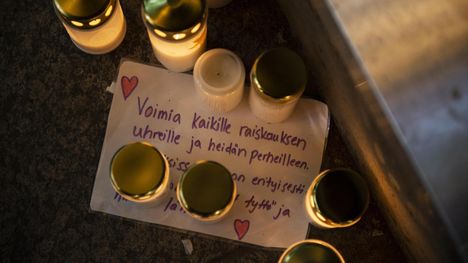 Voimia kaikille raiskauksen
uhreille ja heidän perheilleen.
on erityisesti
tyttö" ja